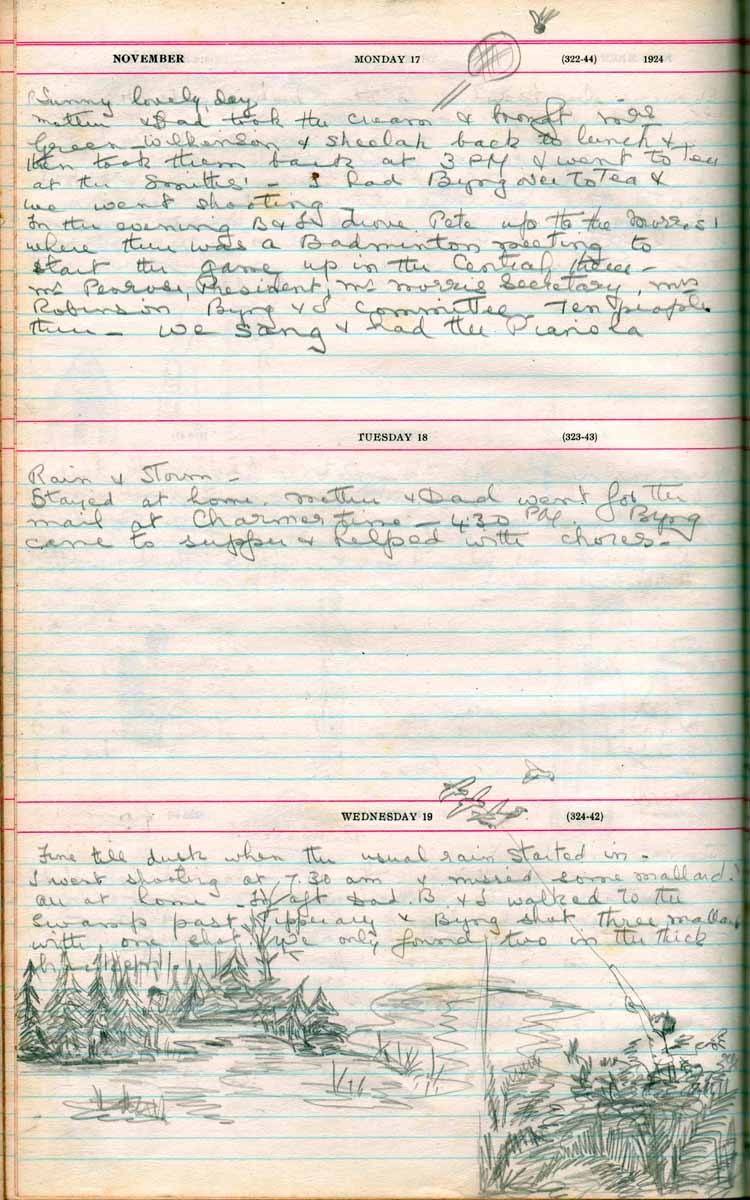 NOVEMBER MONDAY 17 (322-44) 1924
Sunny lovely day
Mother & Dad took the cream & brought Miss
Green-Wilkinson & Sheelah back to lunch &
then took them back at 3 PM & went to Tea
at the Smiths' - I had Byng over to Tea &
we went shooting
In the evening B & I drove Pete up to the
where there was a Badminton meeting to
start the game up in the Central there -
President, Mr Morris Secretary, Mrs
Robinson Byng & I Committee. Ten people
there - We sang & had the Pianola
TUESDAY 18 (323-43)
Rain & Storm -
Stayed at home. Mother & Dad went for the
mail at Charmer time - 4.30 PM. Byng
came to supper & helped with chores -
WEDNESDAY 19 (324-42)
Fine till dusk when the usual rain started in -
I went shooting at 7.30 am & missed some mallard.
All at home - In aft Dad B. & I walked to the
swamp past Tipperary & Byng shot three mallard
with one shot. We only found two in the thick